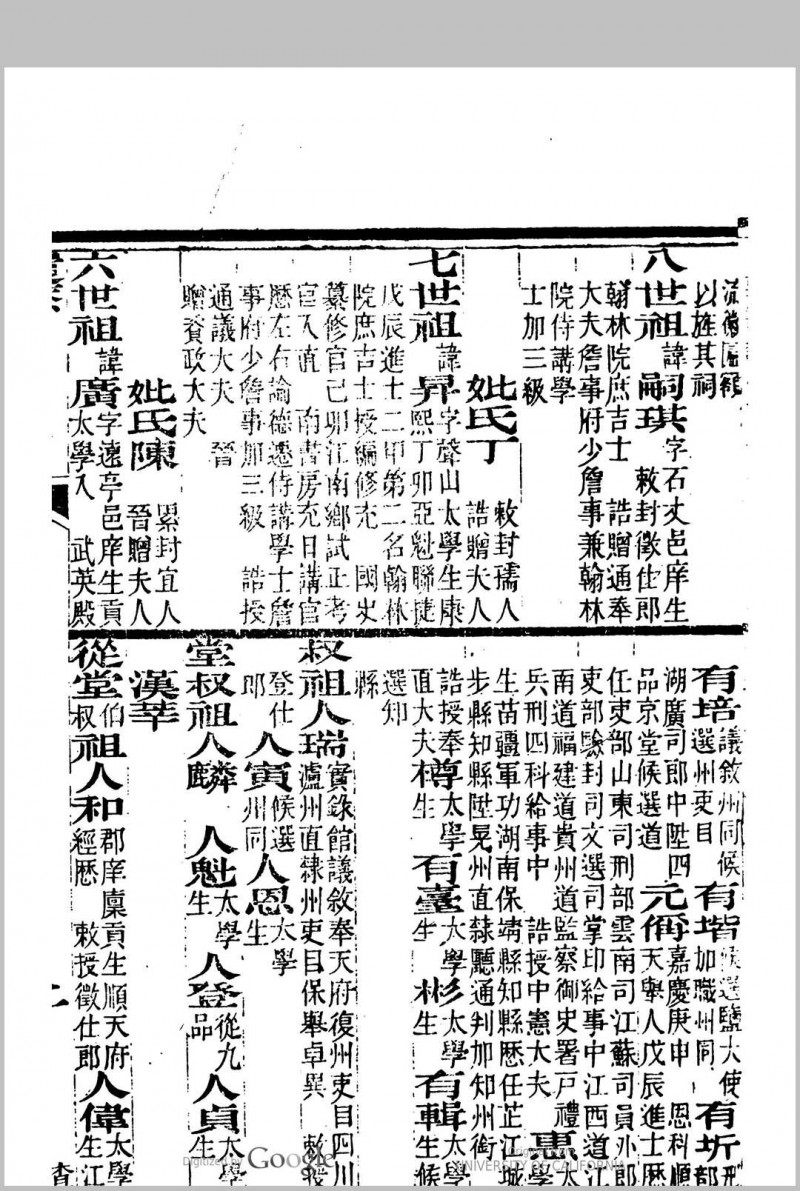 以旌其祠
八世祖諱嗣琪字石丈邑庠生
敕封徵仕郎
翰林院庶吉士 誥贈通奉
大夫詹事府少詹事兼翰林
院侍講學
士加三級
妣氏丁敕封孺人
誥贈夫人
七世祖諱昇字聲山太學生康
熙丁卯亞魁聯捷
戊辰進士二甲第二名翰林
院庶吉士授編修充 國史
纂修官己卯江南鄉試正考
官入直 南書房充日講官
歷左右諭德遷侍講學士詹
事府少詹事加三級 誥授
通議大夫 晉
贈資政大夫
妣氏陳累封宜人
晉贈夫人
六世祖諱廣字遠亭邑庠生貢
太學入 武英殿
有培議敘州同候
選州吏目
有堦候選鹽大使
加職州同
有圻
湖廣司郎中陞四
品京堂候選道
元偁嘉慶庚申 恩科順
天舉人戊辰進士歷
任吏部山東司刑部雲南司江蘇司員外郎
吏部驗封司文選司掌印給事中江西道江
南道福建道貴州道監察御史署戶禮
兵刑四科給事中 誥授中憲大夫
惠太
生苗疆軍功湖南保靖縣知縣歷任芷江城
步縣知縣陞晃州直隸廳通判加知州銜
誥授奉
直大夫
樽太學
生
有臺太學
生
彬太學
生
有輯太學
生候
選知
縣
叔祖人瑞實錄館議敘奉天府復州吏目四川
瀘州直隸州吏目保舉卓異 敕授
登仕
郎
人寅候選
州同
人恩太學
生
堂叔祖人麟 人魁太學
生
人登從九
品
人貞太學
生
漢苹
從堂伯
叔祖人和郡庠廩貢生順天府
經歷 敕授徵仕郎
人偉太學
生江
查
Digitized by Google
UNIVERSITY OF CALIFORNIA